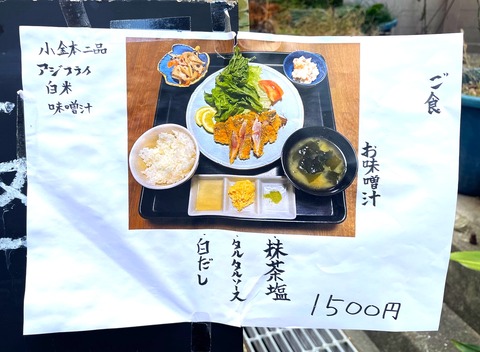 ご食
お味噌汁
小鉢二品
アジフライ
白米
味噌汁
抹茶塩
タルタルソース
白だし
1500円